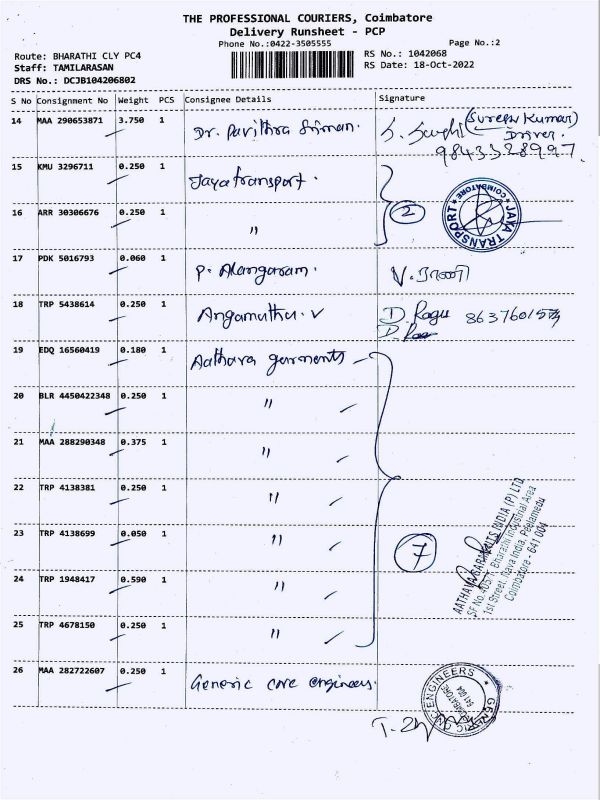 THE PROFESSIONAL COURIERS, Coimbatore
Delivery Runsheet - PCP
Phone No.:0422-3505555
Page No.:2
Route: BHARATHI CLY PC4
RS No.: 1042068
Staff: TAMILARASAN
RS Date: 18-Oct-2022
DRS No.: DCJB104206802
S No Consignment No Weight PCS Consignee Details Signature
14 MAA 290653871 3.750 1 Dr. Pavithra Sriman. (Suresh Kumar)
Driver.
9843328997.
15 KMU 3296711 0.250 1 Jaya transport.
16 ARR 30306676 0.250 1 " 2
COIMBATORE
JAYA TRANSPORT
17 PDK 5016793 0.060 1 P. Alangaram. V. ராணி
18 TRP 5438614 0.250 1 Angamuthu. V D Ragu
19 EDQ 16560419 0.180 1 Aathava garments
20 BLR 4450422348 0.250 1 "
21 MAA 288290348 0.375 1 "
22 TRP 4138381 0.250 1 "
23 TRP 4138699 0.050 1 " 7
24 TRP 1948417 0.590 1 "
25 TRP 4678150 0.250 1 "
AATHAVA GARMENTS INDIA (P) LTD
Bharathi Industrial Area
1st Street, Nava India, Peelamedu
Coimbatore - 641 004
26 MAA 282722607 0.250 1 Generic core engineers.
ENGINEERS
COIMBATORE
641 004